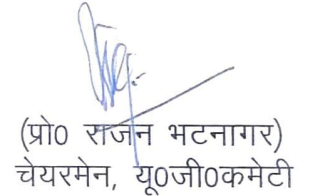 (प्रो0 राजन भटनागर)
चेयरमेन, यू0जी0कमेटी